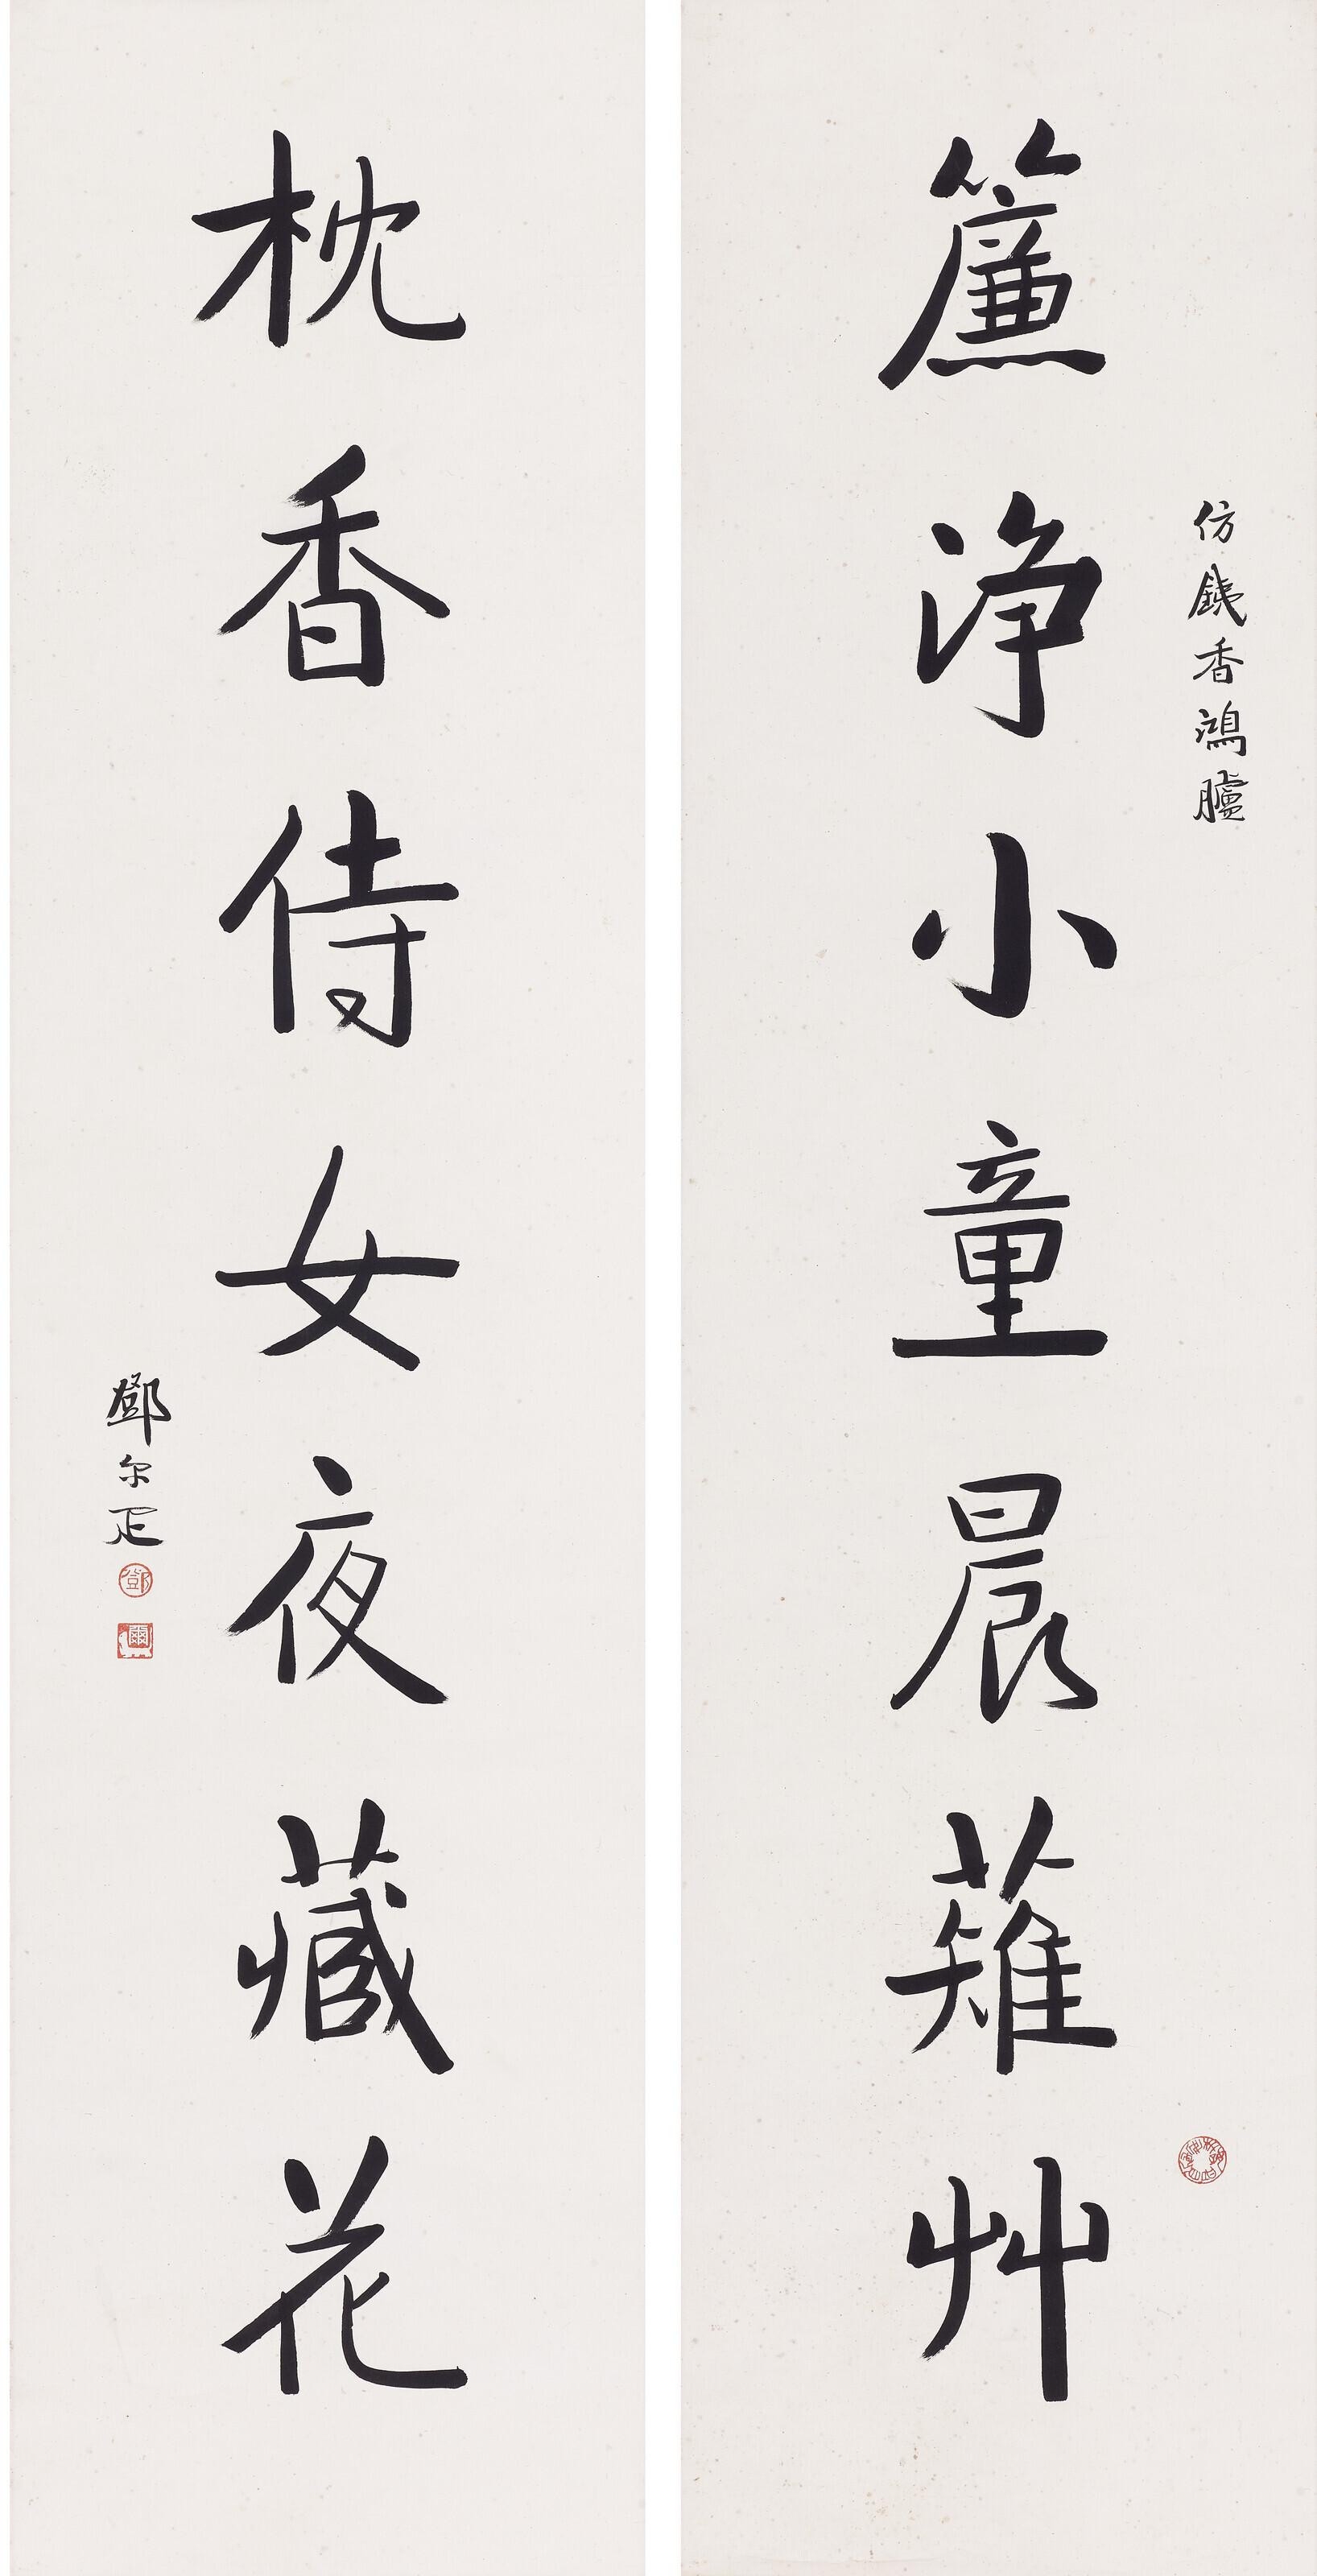 仿銕香鴻臚
簾淨小童晨薙艸
枕香侍女夜藏花
鄧尔疋
鄧
爾